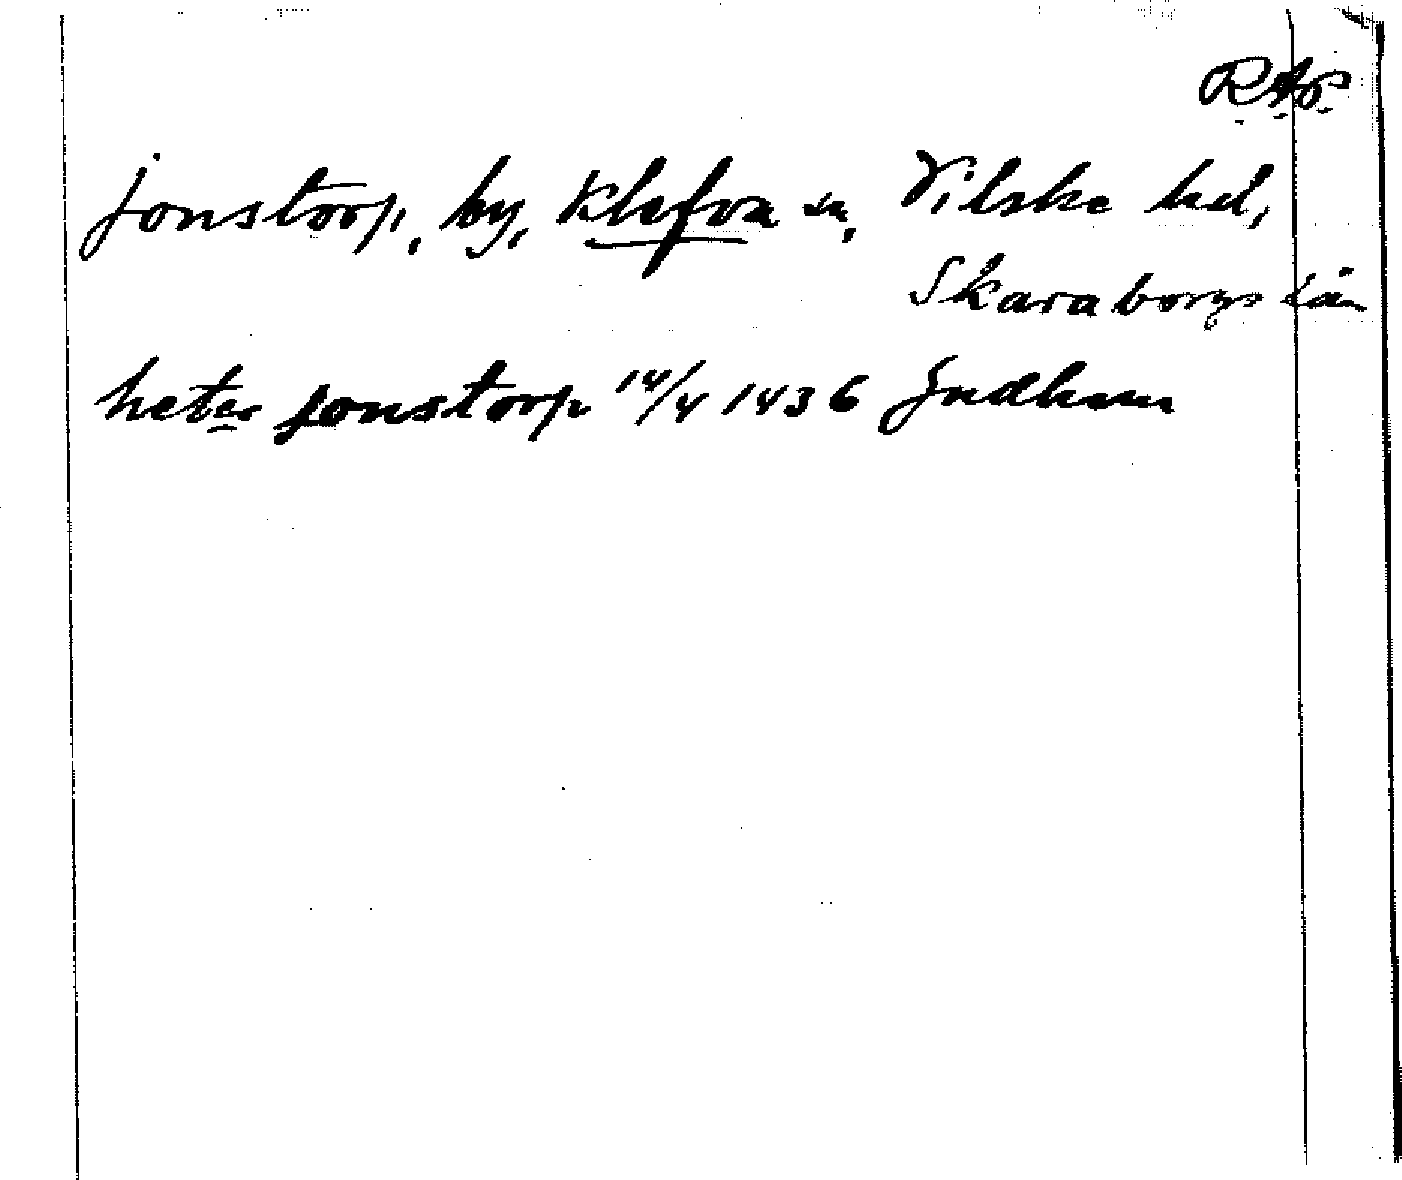 RAP
Jonstorp, by, Klefva sn, Vilske hd,
Skaraborgs län
heter jonstorp 14/4 1436 Gudhem